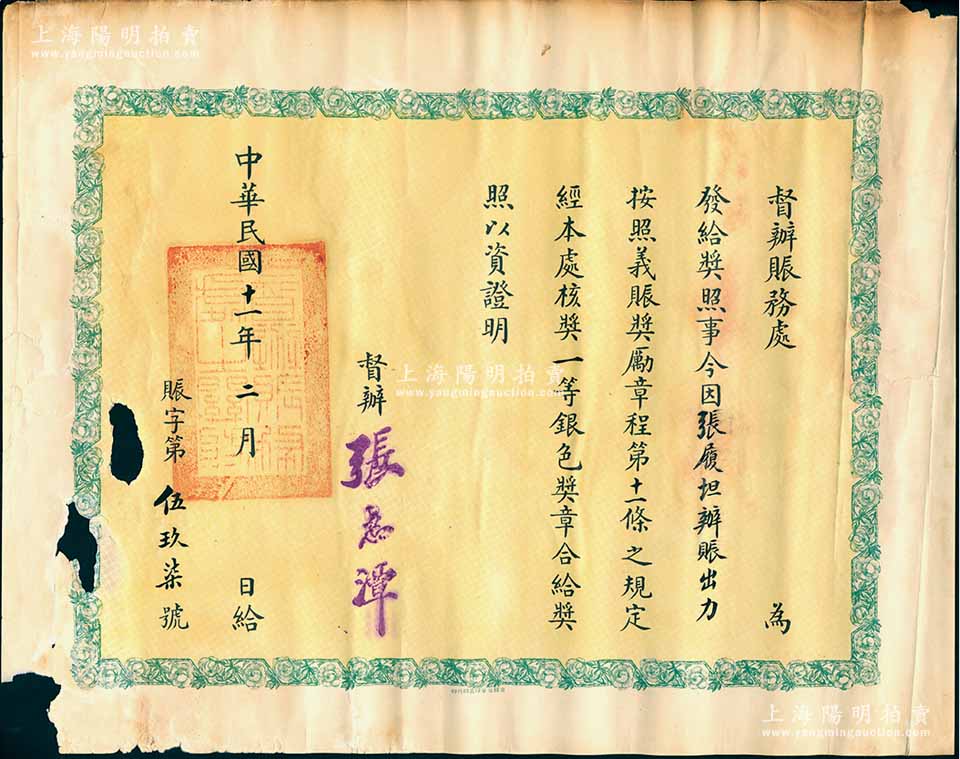 督辦賑務處 為
發給奬照事今因張履坦辦賑出力
按照義賑奬勵章程第十一條之規定
經本處核奬一等銀色奬章合給奬
照以資證明
督辦 張志潭
中華民國十一年二月 日給
賑字第 伍玖柒號
上海陽明拍賣
www.yangmingauction.com
上海陽明拍賣
www.yangmingauction.com
上海陽明拍賣
www.yangmingauction.com